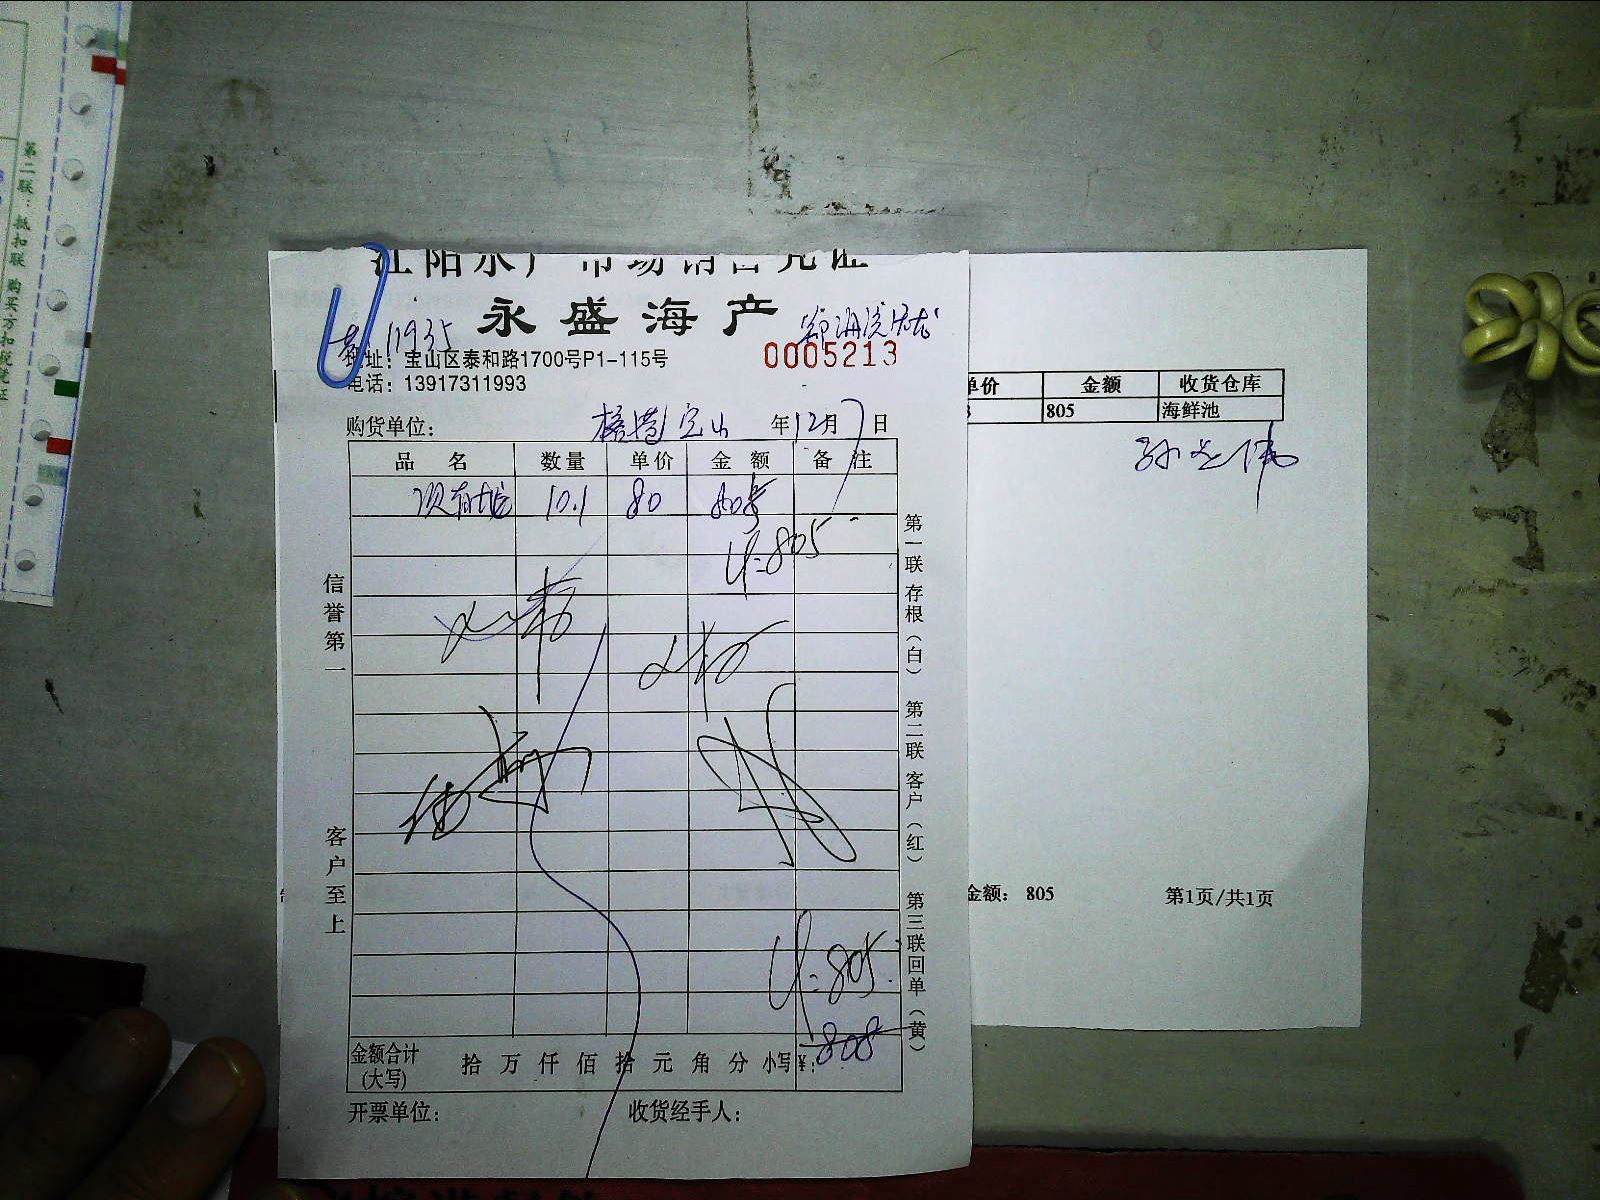 江阳水产市场销售凭证
永盛海产
11935
地址：宝山区泰和路1700号P1-115号
0005213
电话：13917311993
购货单位： 宝山 年12月7日
品名 数量 单价 金额 备注
10.1 80
¥:805
信誉第一
客户至上
第一联存根（白） 第二联客户（红） 第三联回单（黄）
¥:805.
金额合计(大写) 拾 万 仟 佰 拾 元 角 分 小写¥: 808
开票单位： 收货经手人：
单价 金额 收货仓库
805 海鲜池
金额： 805 第1页/共1页
第二联：抵扣联 购买方扣税凭证